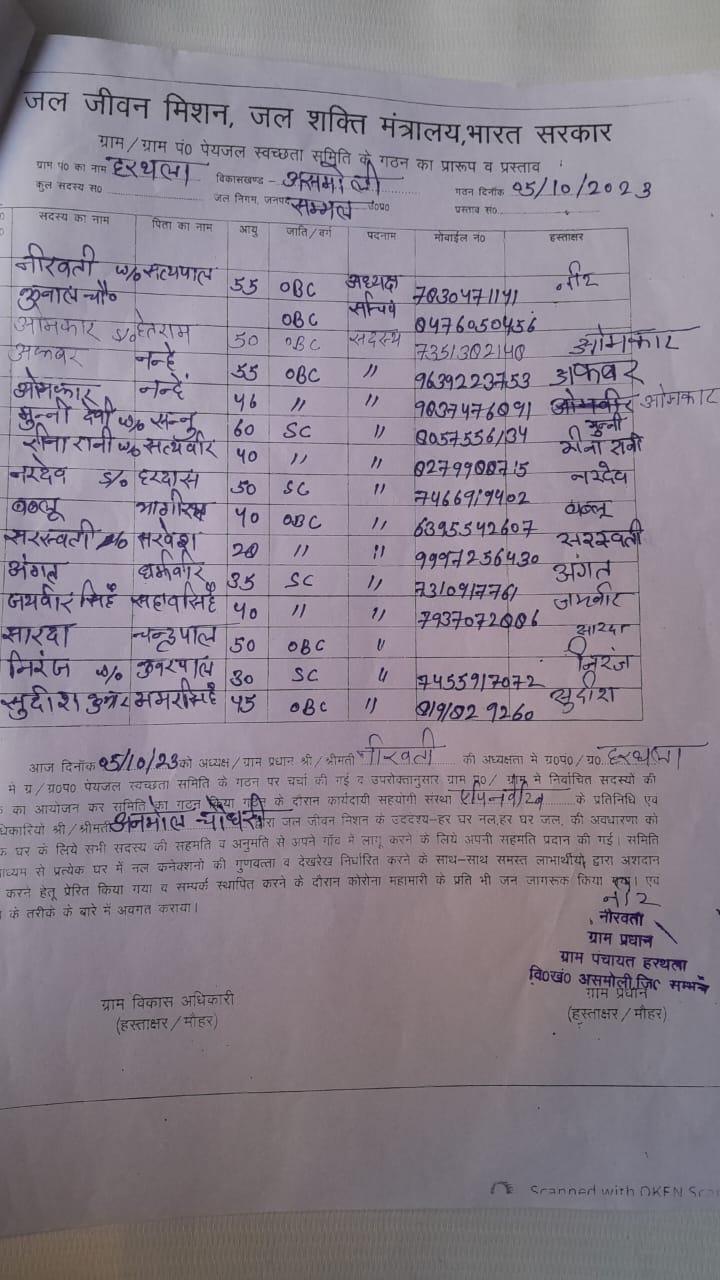 जल जीवन मिशन, जल शक्ति मंत्रालय,भारत सरकार
ग्राम/ग्राम पं० पेयजल स्वच्छता समिति के गठन का प्रारूप व प्रस्ताव
ग्राम पं० का नाम हरथला विकासखण्ड - असमोली गठन दिनांक 05/10/2023
कुल सदस्य स० जल निगम, जनपद सम्भल उ०प्र० प्रस्ताव स०
सदस्य का नाम पिता का नाम आयु जाति/वर्ग पदनाम मोबाईल नं० हस्ताक्षर
नीरवती w/o सत्यपाल 55 OBC अध्यक्ष 7830471141
कुनाल चौ० OBC सचिव 8476050456
ओमकार S/o हेतराम 50 OBC सदस्य 7351302140 ओमकार
अकबर नन्हे 55 OBC " 9639223753 अकबर
ओमकार नन्हे 46 " " 9837476891 ओमवीर ओमकार
मुन्नी देवी w/o सन्नू 60 SC " 8057556134 मुन्नी
मीना रानी w/o सत्यवीर 40 " " 8279980715 मीना रानी
नरदेव S/o हरदास 50 SC " 7466919402 नरदेव
बब्लू भागीरथ 40 OBC " 6395542607 बब्लू
सरस्वती w/o सरवेश 28 " " 9997256430 सरस्वती
अंगत धर्मवीर 35 SC " 7310917761 अंगत
जयवीर सिहँ सहाव सिहँ 40 " " 7937072886 जयवीर
सारदा चन्द्रपाल 50 OBC " सारदा
निरंज w/o कुवरपाल 30 SC " 7455917072 निरंज
सुदीश कुमार भमर सिहँ 45 OBC " 8191829260 सुदीश
आज दिनाँक 05/10/23 को अध्यक्ष/ग्राम प्रधान श्री/श्रीमती नीरवती की अध्यक्षता में ग्र०पं०/ग्र० हरथला
में ग्र/ग्र०प० पेयजल स्वच्छता समिति के गठन पर चर्चा की गई व उपरोक्तानुसार ग्राम प०/ ग्राम में निर्वाचित सदस्यों की
क का आयोजन कर समिति का गठन किया गठन के दौरान कार्यदायी सहयोगी संस्था के प्रतिनिधि एवं
धिकारियो श्री/श्रीमती अनमोल चौधरी द्वारा जल जीवन मिशन के उददेश्य-हर घर नल,हर घर जल, की अवधारणा को
क घर के लिये सभी सदस्य की सहमति व अनुमति से अपने गाँव में लागू करने के लिये अपनी सहमति प्रदान की गई। समिति
ाध्यम से प्रत्येक घर में नल कनेक्शनो की गुणवत्ता व देखरेख निर्धारित करने के साथ-साथ समस्त लाभार्थीयो द्वारा अशदान
करने हेतू प्रेरित किया गया व सम्पर्क स्थापित करने के दौरान कोरोना महामारी के प्रति भी जन जागरूक किया गया। एवं
के तरीके के बारे में अवगत कराया।
नौरवती
ग्राम प्रधान
ग्राम पंचायत हरथला
वि०खं० असमोली जि० सम्भल
ग्राम विकास अधिकारी ग्राम प्रधान
(हस्ताक्षर/मौहर) (हस्ताक्षर/मौहर)
Scanned with OKEN Scan